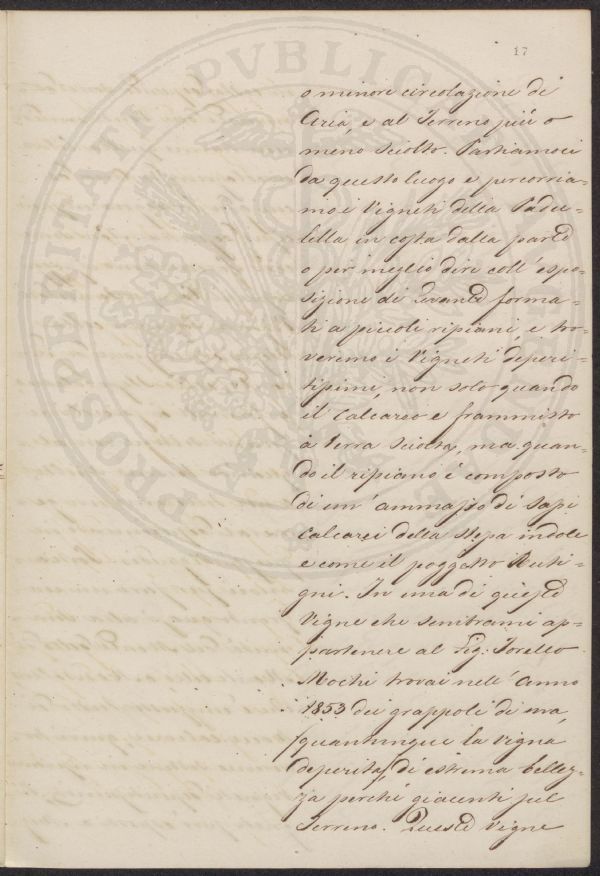 17
o minore circolazione di
Aria, e al Terreno più o
meno sciolto. Partiamoci
da questo luogo e percorria-
mo i Vigneti della Padu-
lella in costa dalla parte
o per meglio dire coll' espo-
sizione di Levante forma-
ti a piccoli ripiani, e tro-
veremo i Vigneti deperi-
tissimi, non solo quando
il Calcareo e frammisto
a terra sciolta, ma quan-
do il ripiano é composto
di un' ammasso di sassi
Calcarei della stessa indole
e come il poggetto
gni. In una di queste
Vigne che sembrami ap-
partenere al Sig: Torello
Mochi trovai nell' Anno
1853 dei grappoli di uva,
(quantunque la Vigna
deperita) di estrema bellez-
za perché giacenti sul
Terreno. Queste Vigne
PROSPERITATI PVBLICAE